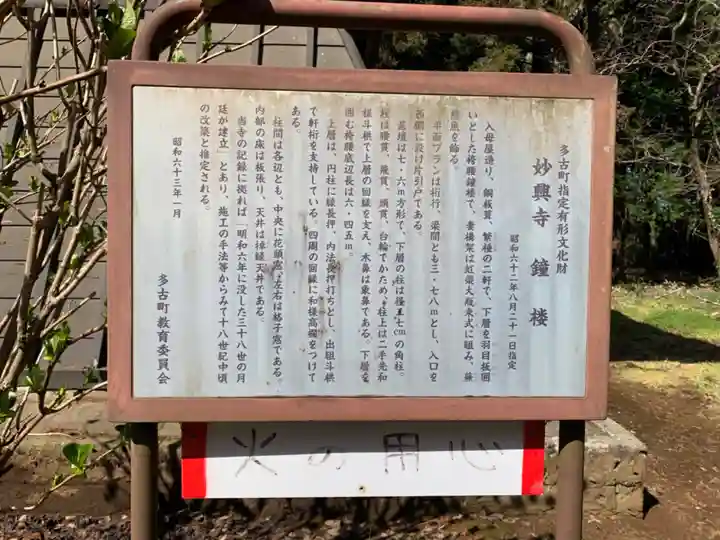 多古町指定有形文化財
妙興寺 鐘楼
昭和六十二年八月二十一日指定
入母屋造り、銅板葺、繁棰の二軒で、下層を羽目板囲
いとした袴腰鐘楼で、妻構架は虹梁大瓶束式に組み、蕪
懸魚を飾る。
平面プランは桁行、梁間とも三・七八mとし、入口を
西側に設け片引戸である。
基壇は七・六m方形で、下層の柱は径三七cmの角柱。
柱は腰貫、飛貫、頭貫、台輪でかため、柱上は二手先和
様斗栱で上層の回縁を支え、木鼻は象鼻である。下層を
囲む袴腰底辺長は六・四五m。
上層は、円柱に縁長押、内法長押打ちとし、出組斗栱
で軒桁を支持している。四周の回縁に和様高欄をつけて
ある。
柱間は各辺とも、中央に花頭窓、左右は格子窓である。
内部の床は板張り、天井は棹縁天井である。
当寺の記録に拠れば「明和六年に没した三十八世の日
廷が建立」とあり、施工の手法等からみて十八世紀中頃
の改築と推定される。
昭和六十三年一月
多古町教育委員会
火の用心